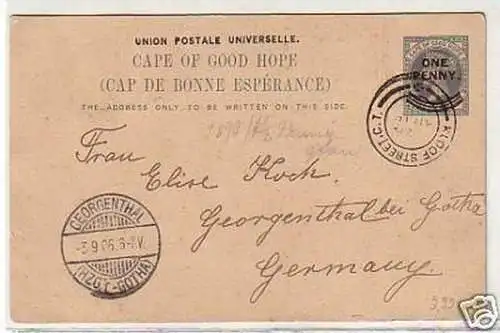 UNION POSTALE UNIVERSELLE.
CAPE OF GOOD HOPE
(CAP DE BONNE ESPÉRANCE)
THE ADDRESS ONLY TO BE WRITTEN ON THIS SIDE.
CAPE OF GOOD HOPE
ONE
PENNY.
KLOOF STREET. C.T.
Frau
Elise Koch.
Georgenthal bei Gotha
Germany.
GEORGENTHAL
-3.9.06.
(HZGT. GOTHA)